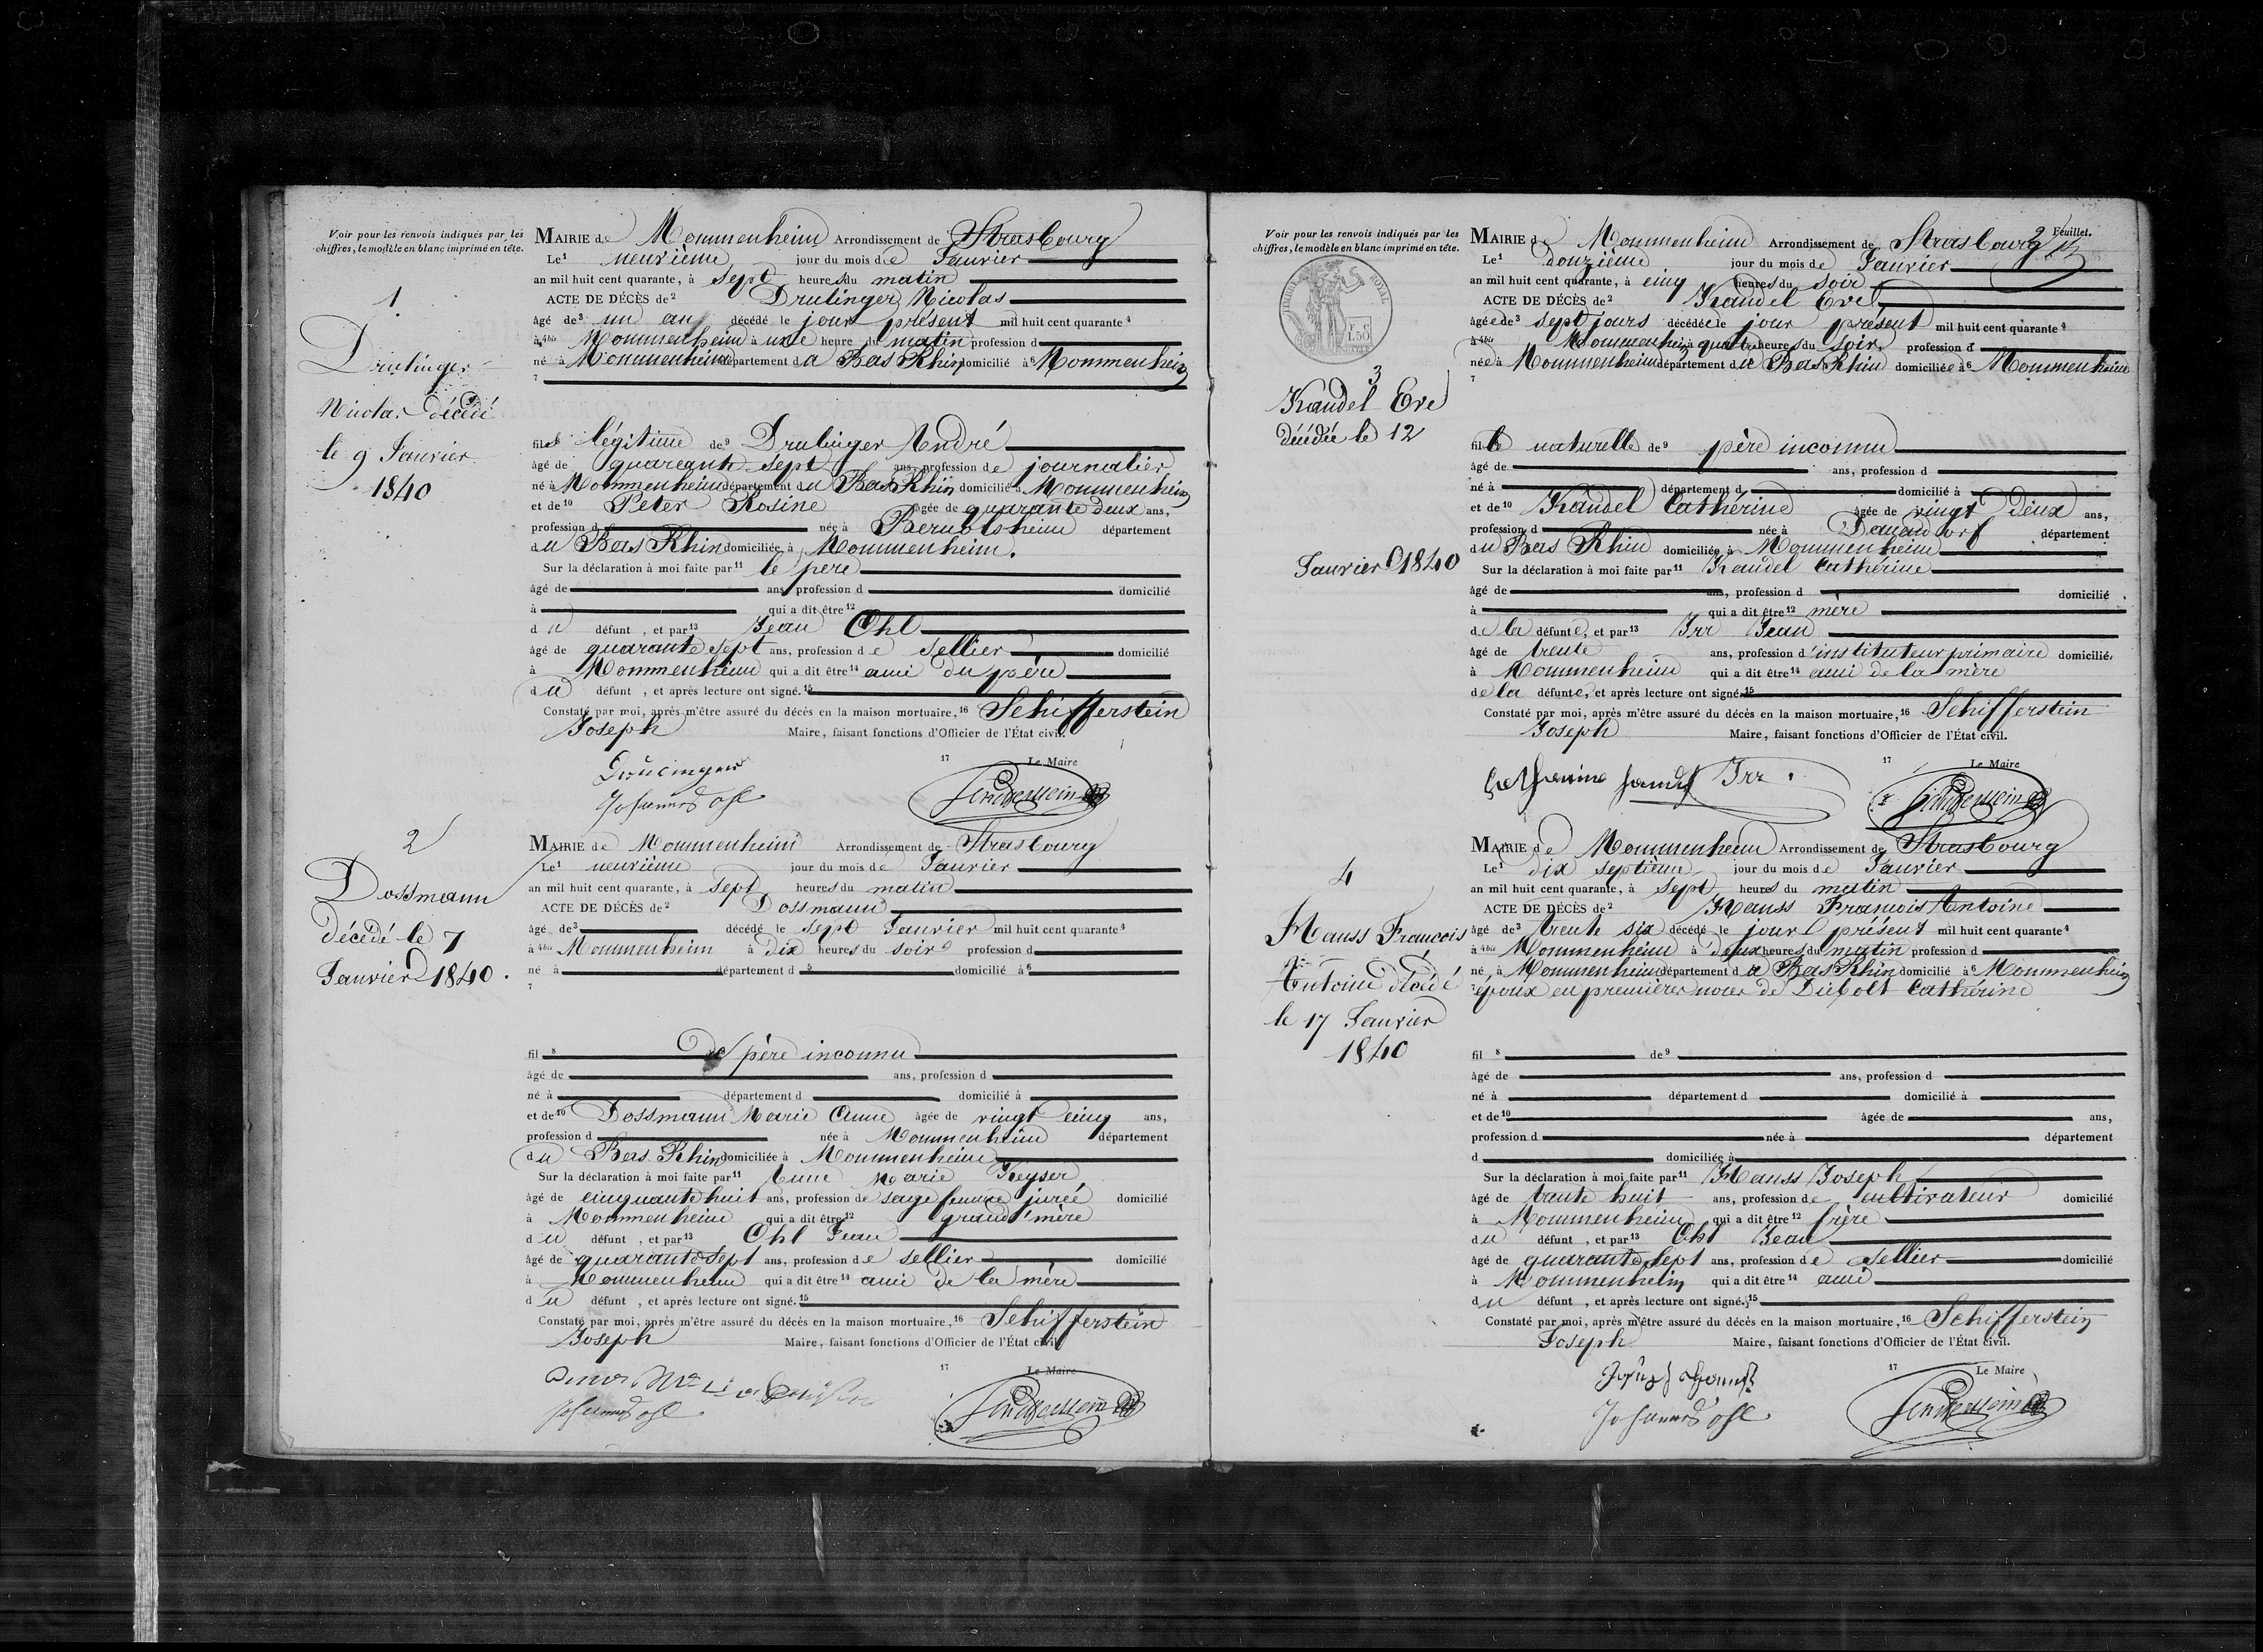 Voir pour les renvois indiqués par les
chiffres, le modèle en blanc imprimé en tête.
1
Drulinger
Nicolas décédé
le 9 Janvier
1840
MAIRIE de Mommenheim Arrondissement de Strasbourg
Le1 neuvième jour du mois de Janvier
an mil huit cent quarante, à sept heures du matin
ACTE DE DÉCÈS de2 Drulinger Nicolas
âgé de3 un an décédé le jour présent mil huit cent quarante4
à4bis Mommenheim à une heure du matin profession d
né à Mommenheim département du Bas Rhin domicilié à6 Mommenheim
7
fils légitime de9 Drulinger André
âgé de quarante sept ans, profession de journalier
né à Mommenheim département du Bas Rhin domicilié à Mommenheim
et de10 Peter Rosine âgée de quarante deux ans,
profession d née à Bernolsheim département
du Bas Rhin domiciliée à Mommenheim.
Sur la déclaration à moi faite par11 le père
âgé de ans, profession d domicilié
à qui a dit être12
du défunt, et par13 Jean Ohl
âgé de quarante sept ans, profession de sellier domicilié
à Mommenheim qui a dit être14 ami du père
du défunt, et après lecture ont signé.15
Constaté par moi, après m'être assuré du décès en la maison mortuaire,16 Schifferstein
Joseph Maire, faisant fonctions d'Officier de l'État civil.
17 Le Maire
Johannes Ohl
2
Dossmann
décédé le 7
Janvier 1840.
MAIRIE de Mommenheim Arrondissement de Strasbourg
Le1 neuvième jour du mois de Janvier
an mil huit cent quarante, à sept heures du matin
ACTE DE DÉCÈS de2 Dossmann
âgé de3 décédé le sept Janvier mil huit cent quarante4
à4bis Mommenheim à dix heures du soir profession d
né à département d5 domicilié à6
7
fil8 de père inconnu
âgé de ans, profession d
né à département d domicilié à
et de10 Dossmann Marie Anne âgée de vingt cinq ans,
profession d née à Mommenheim département
du Bas Rhin domiciliée à Mommenheim
Sur la déclaration à moi faite par11 Anne Marie Keyser
âgé de cinquante huit ans, profession de sage femme jurée domicilié
à Mommenheim qui a dit être12 grand'mère
du défunt, et par13 Ohl Jean
âgé de quarante sept ans, profession de sellier domicilié
à Mommenheim qui a dit être14 ami de la mère
du défunt, et après lecture ont signé.15
Constaté par moi, après m'être assuré du décès en la maison mortuaire,16 Schifferstein
Joseph Maire, faisant fonctions d'Officier de l'État civil.
17 Le Maire
Johannes Ohl
2 Feuillet.
Voir pour les renvois indiqués par les
chiffres, le modèle en blanc imprimé en tête.
TIMBRE ROYAL
3
Kandel Eve
décédée le 12
Janvier 1840
MAIRIE de Mommenheim Arrondissement de Strasbourg
Le1 douzième jour du mois de Janvier
an mil huit cent quarante, à cinq heures du soir
ACTE DE DÉCÈS de2 Kandel Eve
âgée de3 sept jours décédée le jour présent mil huit cent quarante4
à4bis Mommenheim à quatre heures du soir. profession d
née à Mommenheim département du Bas Rhin domiciliée à6 Mommenheim
7
fille naturelle de9 père inconnu
âgé de ans, profession d
né à département d domicilié à
et de10 Kandel Cathérine âgée de vingt deux ans,
profession d née à Dauendorf département
du Bas Rhin domiciliée à Mommenheim
Sur la déclaration à moi faite par11 Kandel Cathérine
âgé de ans, profession d domicilié
à qui a dit être12 mère
de la défunte, et par13 Irr Jean
âgé de trente ans, profession d'instituteur primaire domicilié
à Mommenheim qui a dit être14 ami de la mère
de la défunte, et après lecture ont signé.15
Constaté par moi, après m'être assuré du décès en la maison mortuaire,16 Schifferstein
Joseph Maire, faisant fonctions d'Officier de l'État civil.
17 Le Maire
Irr
4
Hauss François
Antoine décédé
le 17 Janvier
1840
MAIRIE de Mommenheim Arrondissement de Strasbourg
Le1 dix septième jour du mois de Janvier
an mil huit cent quarante, à sept heures du matin
ACTE DE DÉCÈS de2 Hauss François Antoine
âgé de3 trente six décédé le jour présent mil huit cent quarante4
à4bis Mommenheim à deux heures du matin profession d
né à Mommenheim département du Bas Rhin domicilié à6 Mommenheim
7 époux en premières noces de Diebolt Cathérine
fil8 de9
âgé de ans, profession d
né à département d domicilié à
et de10 âgée de ans,
profession d née à département
d domiciliée à
Sur la déclaration à moi faite par11 Hauss Joseph
âgé de trente huit ans, profession de cultivateur domicilié
à Mommenheim qui a dit être12 frère
du défunt, et par13 Ohl Jean
âgé de quarante sept ans, profession de sellier domicilié
à Mommenheim qui a dit être14 ami
du défunt, et après lecture ont signé.15
Constaté par moi, après m'être assuré du décès en la maison mortuaire,16 Schifferstein
Joseph Maire, faisant fonctions d'Officier de l'État civil.
17 Le Maire
Johannes Ohl